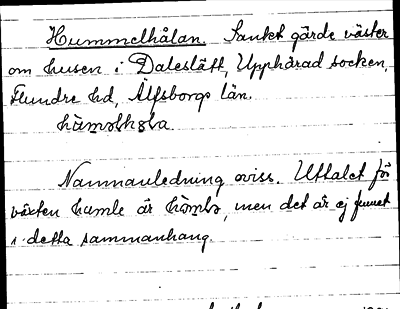 Hummelhålan. Sankt gärde väster
om husen i Daleslätt, Upphärad socken,
Flundre hd, Älfsborgs län.
Namnanledning oviss. Uttalet för
växten humle är, men det är ej funnet
i detta sammanhang.